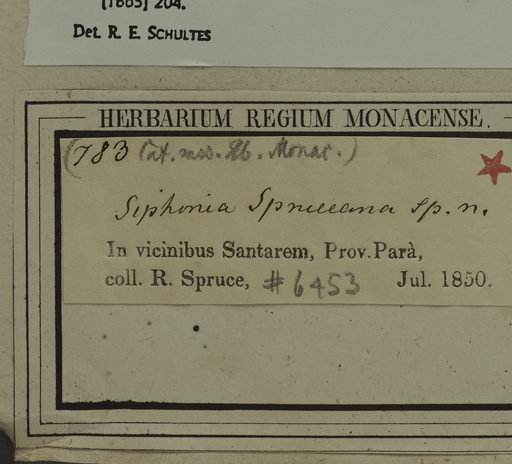 (1865) 204.
Det. R. E. SCHULTES
HERBARIUM REGIUM MONACENSE.
(783 Cat. mss. Hb. Monac.)
Siphonia Spruceana sp. n.
In vicinibus Santarem, Prov. Parà,
coll. R. Spruce, #6453 Jul. 1850.